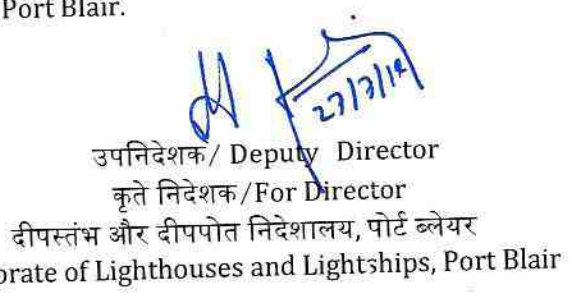 Port Blair.
उपनिदेशक/ Deputy Director
कृते निदेशक/For Director
दीपस्तंभ और दीपपोत निदेशालय, पोर्ट ब्लेयर
orate of Lighthouses and Lightships, Port Blair